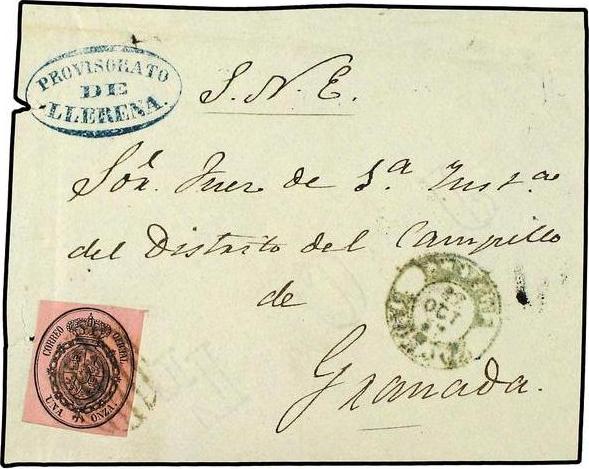 PROVISORATO
DE
LLERENA.
S. N. E.
Sör. Juez de 1ª Instª
del Distrito del Campillo
de
Granada.
27
OCT
CORREO OFICIAL
UNA ONZA.